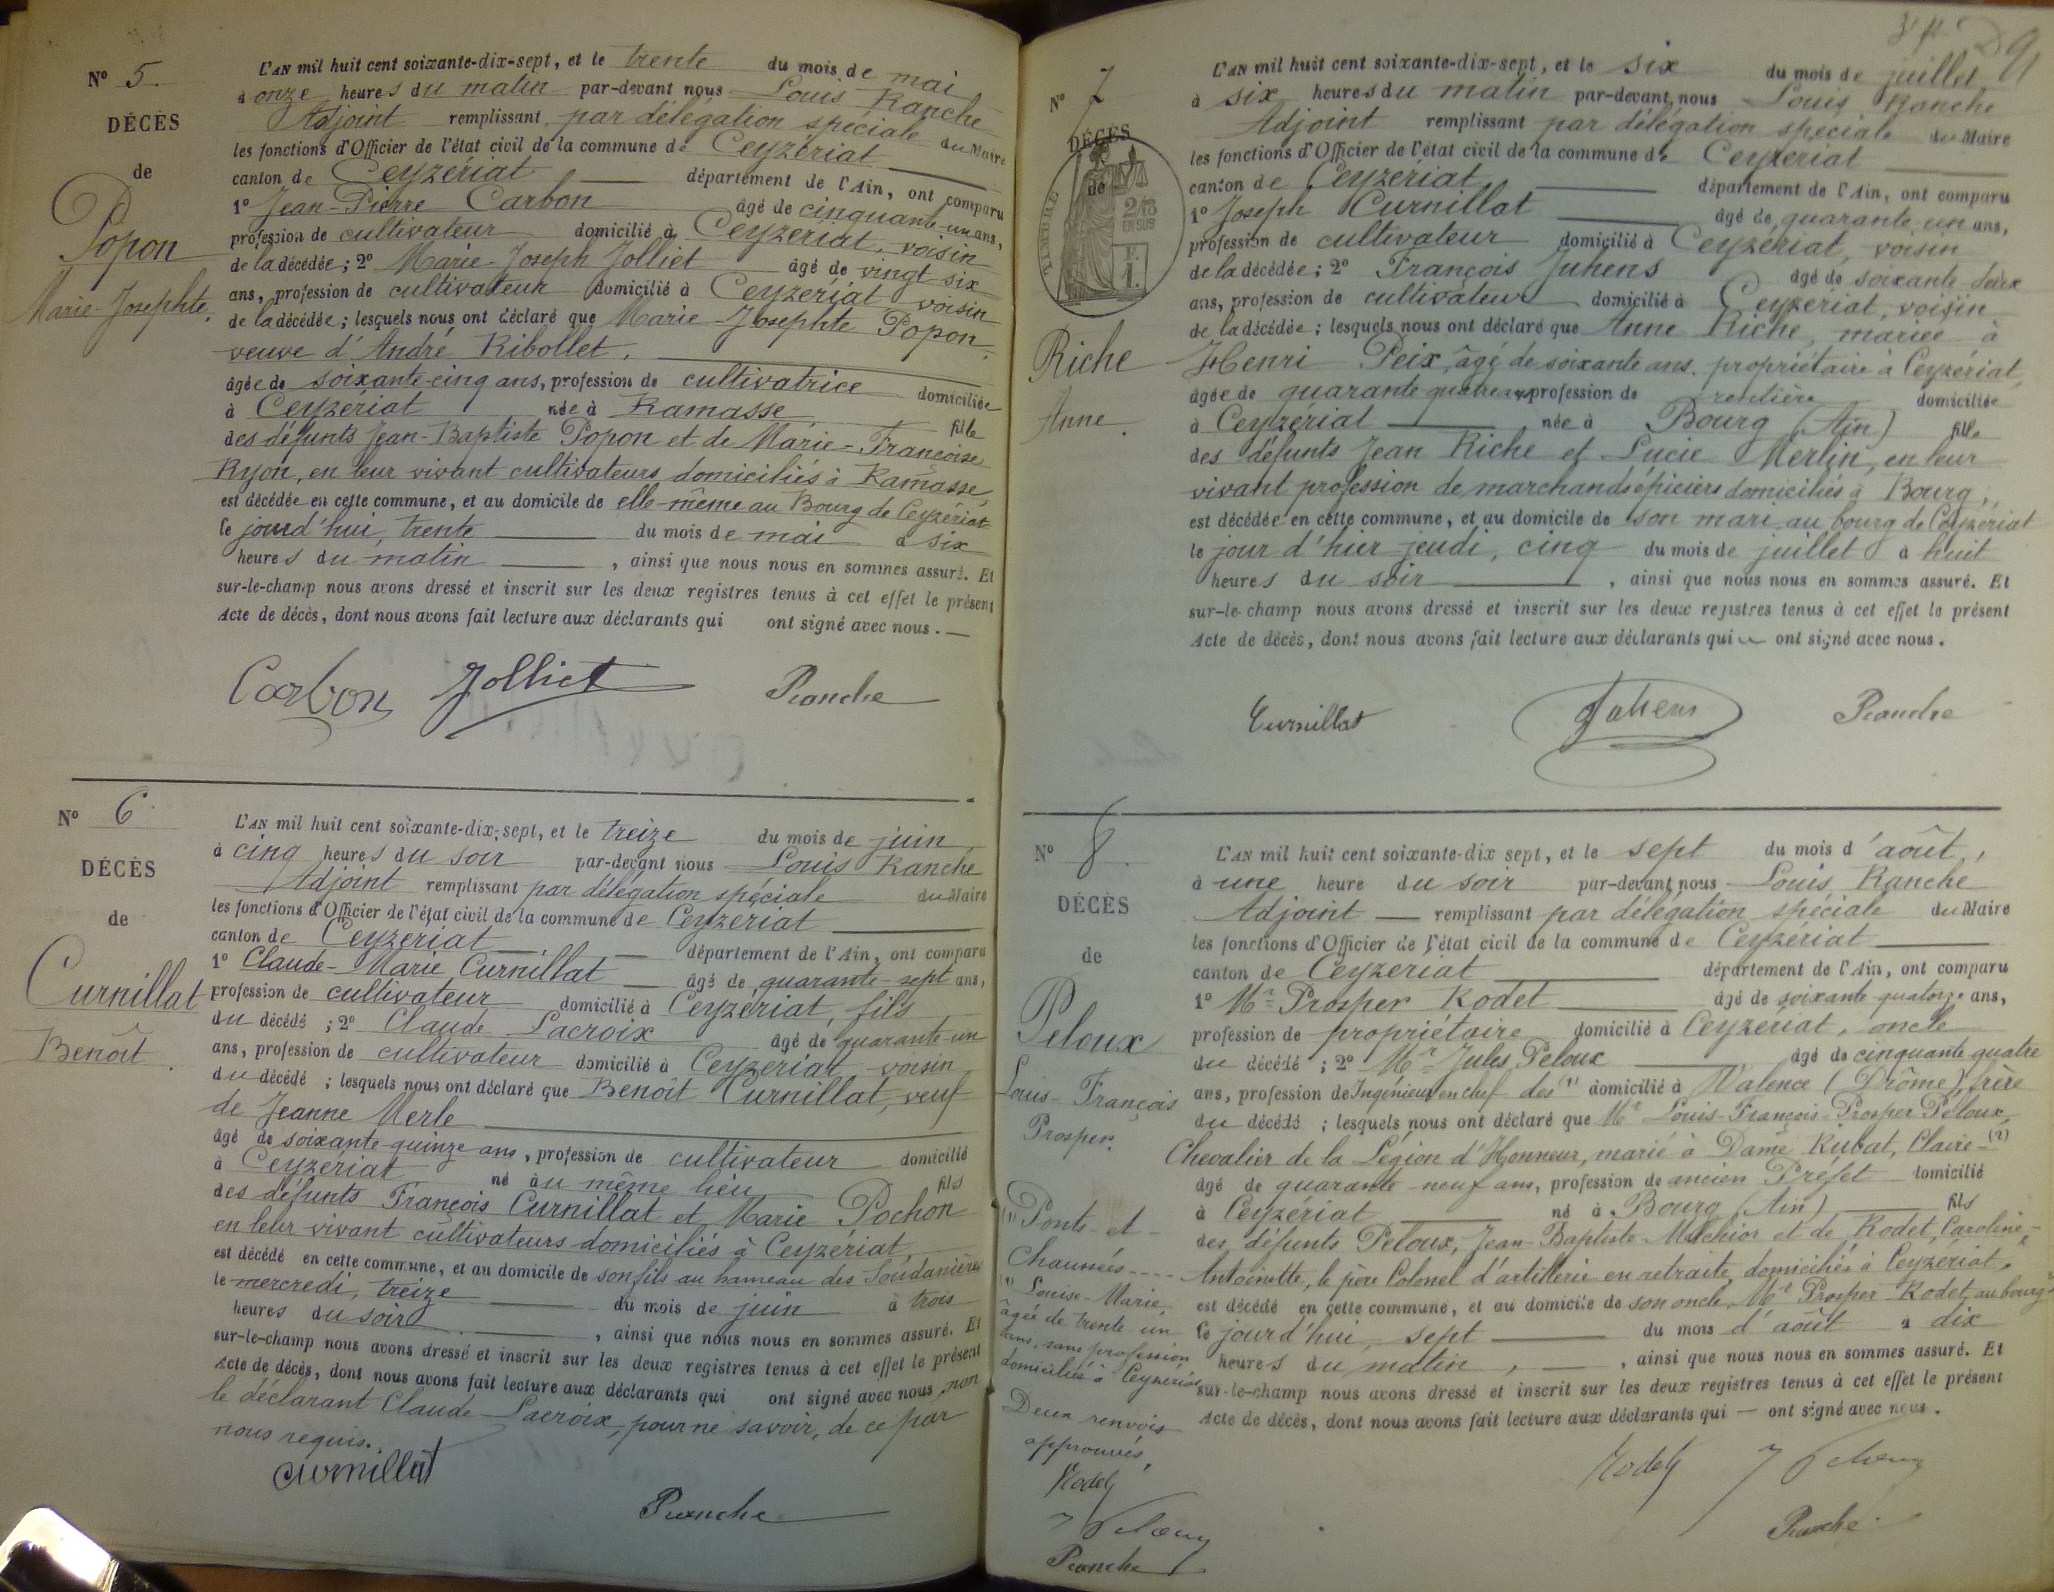 N° 5.
DÉCÈS
de
Popon
Marie-Josephte.
L'AN mil huit cent soixante-dix-sept, et le trente du mois de mai
à onze heures du matin par-devant nous Louis Ranche
Adjoint remplissant par délégation spéciale du Maire
les fonctions d'Officier de l'état civil de la commune de Ceyzériat
canton de Ceyzériat département de l'Ain, ont comparu
1° Jean-Pierre Carbon âgé de cinquante-un ans,
profession de cultivateur domicilié à Ceyzériat, voisin
de la décédée; 2° Marie-Joseph Jolliet âgé de vingt six
ans, profession de cultivateur domicilié à Ceyzériat voisin
de la décédée; lesquels nous ont déclaré que Marie-Josephte Popon,
veuve d'André Ribollet.
âgée de soixante-cinq ans, profession de cultivatrice domiciliée
à Ceyzériat née à Ramasse fille
des défunts Jean-Baptiste Popon et de Marie-Françoise
Ryon, en leur vivant cultivateurs domiciliés à Ramasse,
est décédée en cette commune, et au domicile de elle-même au Bourg de Ceyzériat
le jourd'hui, trente du mois de mai à six
heures du matin, ainsi que nous nous en sommes assuré. Et
sur-le-champ nous avons dressé et inscrit sur les deux registres tenus à cet effet le présent
Acte de décès, dont nous avons fait lecture aux déclarants qui ont signé avec nous.
Carbon Jolliet Ranche
N° 6
DÉCÈS
de
Curnillat
Benoît.
L'AN mil huit cent soixante-dix-sept, et le treize du mois de juin
à cinq heures du soir par-devant nous Louis Ranche
Adjoint remplissant par délégation spéciale du Maire
les fonctions d'Officier de l'état civil de la commune de Ceyzériat
canton de Ceyzériat département de l'Ain, ont comparu
1° Claude-Marie Curnillat âgé de quarante-sept ans,
profession de cultivateur domicilié à Ceyzériat, fils
du décédé; 2° Claude Lacroix âgé de quarante-un
ans, profession de cultivateur domicilié à Ceyzériat, voisin
du décédé; lesquels nous ont déclaré que Benoît Curnillat, veuf
de Jeanne Merle
âgé de soixante-quinze ans, profession de cultivateur domicilié
à Ceyzériat né au même lieu fils
des défunts François Curnillat et Marie Pochon
en leur vivant cultivateurs domiciliés à Ceyzériat,
est décédé en cette commune, et au domicile de son fils au hameau des Soudanières
le mercredi, treize du mois de juin à trois
heures du soir, ainsi que nous nous en sommes assuré. Et
sur-le-champ nous avons dressé et inscrit sur les deux registres tenus à cet effet le présent
Acte de décès, dont nous avons fait lecture aux déclarants qui ont signé avec nous, non
le déclarant Claude Lacroix, pour ne savoir, de ce par
nous requis.
Curnillat
Ranche
N° 7
DÉCÈS
de
TIMBRE
2/10
EN SUS
Riche
Anne.
L'AN mil huit cent soixante-dix-sept, et le six du mois de juillet
à six heures du matin par-devant nous Louis Ranche
Adjoint remplissant par délégation spéciale du Maire
les fonctions d'Officier de l'état civil de la commune de Ceyzériat
canton de Ceyzériat département de l'Ain, ont comparu
1° Joseph Curnillat âgé de quarante un ans,
profession de cultivateur domicilié à Ceyzériat, voisin
de la décédée; 2° François Juhens âgé de soixante deux
ans, profession de cultivateur domicilié à Ceyzériat, voisin
de la décédée; lesquels nous ont déclaré que Anne Riche, mariée à
Henri Peix, âgé de soixante ans, propriétaire à Ceyzériat,
âgée de quarante quatre ans, profession de rentière domiciliée
à Ceyzériat née à Bourg (Ain) fille
des défunts Jean Riche et Lucie Merlin, en leur
vivant profession de marchands épiciers domiciliés à Bourg,
est décédée en cette commune, et au domicile de son mari au bourg de Ceyzériat
le jour d'hier jeudi, cinq du mois de juillet à huit
heures du soir, ainsi que nous nous en sommes assuré. Et
sur-le-champ nous avons dressé et inscrit sur les deux registres tenus à cet effet le présent
Acte de décès, dont nous avons fait lecture aux déclarants qui ont signé avec nous.
Curnillat Juhens Ranche
N° 8.
DÉCÈS
de
Peloux
Louis-François
Prosper.
L'AN mil huit cent soixante-dix sept, et le sept du mois d'août,
à une heure du soir par-devant nous Louis Ranche
Adjoint remplissant par délégation spéciale du Maire
les fonctions d'Officier de l'état civil de la commune de Ceyzériat
canton de Ceyzériat département de l'Ain, ont comparu
1° Mr Prosper Rodet âgé de soixante quatorze ans,
profession de propriétaire domicilié à Ceyzériat, oncle
du décédé; 2° Mr Jules Peloux âgé de cinquante quatre
ans, profession de Ingénieur en chef des (1) domicilié à Valence (Drôme), frère
du décédé; lesquels nous ont déclaré que Mr Louis-François-Prosper Peloux,
Chevalier de la Légion d'Honneur, marié à Dame Rubat, Claire-(2)
âgé de quarante-neuf ans, profession de ancien Préfet domicilié
à Ceyzériat né à Bourg (Ain) fils
des défunts Peloux, Jean-Baptiste-Melchior et de Rodet, Caroline-
Antoinette, le père Colonel d'artillerie en retraite domiciliés à Ceyzériat,
est décédé en cette commune, et au domicile de son oncle, Mr Prosper Rodet, au bourg
le jourd'hui, sept du mois d'août à dix
heures du matin, ainsi que nous nous en sommes assuré. Et
sur-le-champ nous avons dressé et inscrit sur les deux registres tenus à cet effet le présent
Acte de décès, dont nous avons fait lecture aux déclarants qui ont signé avec nous.
Rodet J Peloux
Ranche
(1) Ponts-et-
Chaussées
Louise-Marie,
âgée de trente un
ans, sans profession
domiciliée à Ceyzériat
Deux renvois
approuvés,
Rodet
J Peloux
Ranche